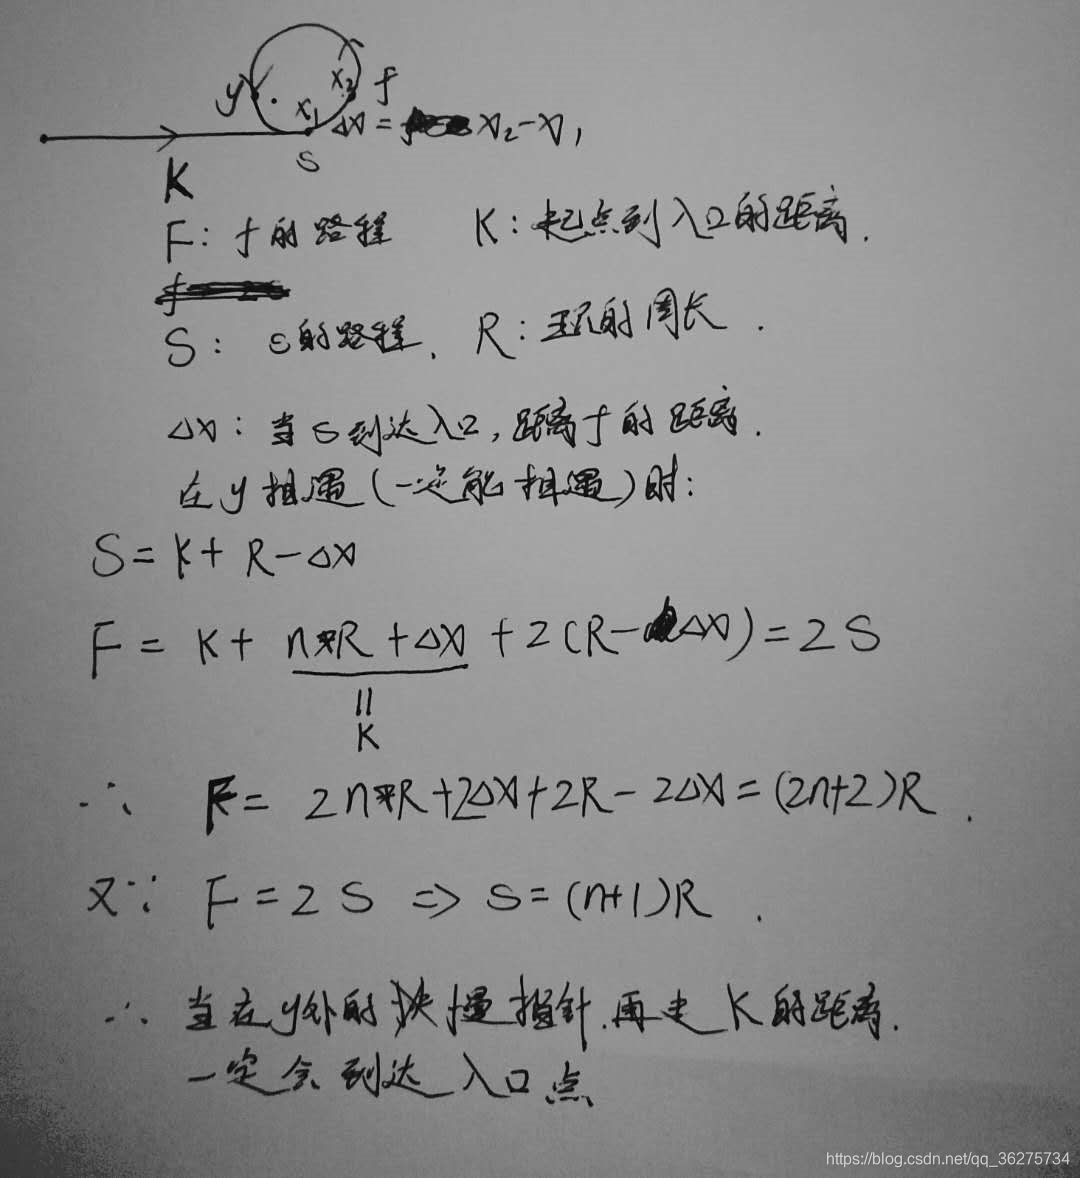 y x₁ x₂ f
Δx = x₂-x₁
S
K
F: f的路程 K: 起点到入口的距离.
S: s的路程. R: 环的周长.
Δx: 当s到达入口,距离f的距离.
在y相遇(一定能相遇)时:
S = K + R - Δx
F = K + n*R + Δx + 2(R-Δx) = 2S
||
K
∴ F = 2n*R + 2Δx + 2R - 2Δx = (2n+2)R.
又∵ F = 2S => S = (n+1)R.
∴ 当在y处的快慢指针.再走K的距离.
一定会到达入口点
https://blog.csdn.net/qq_36275734